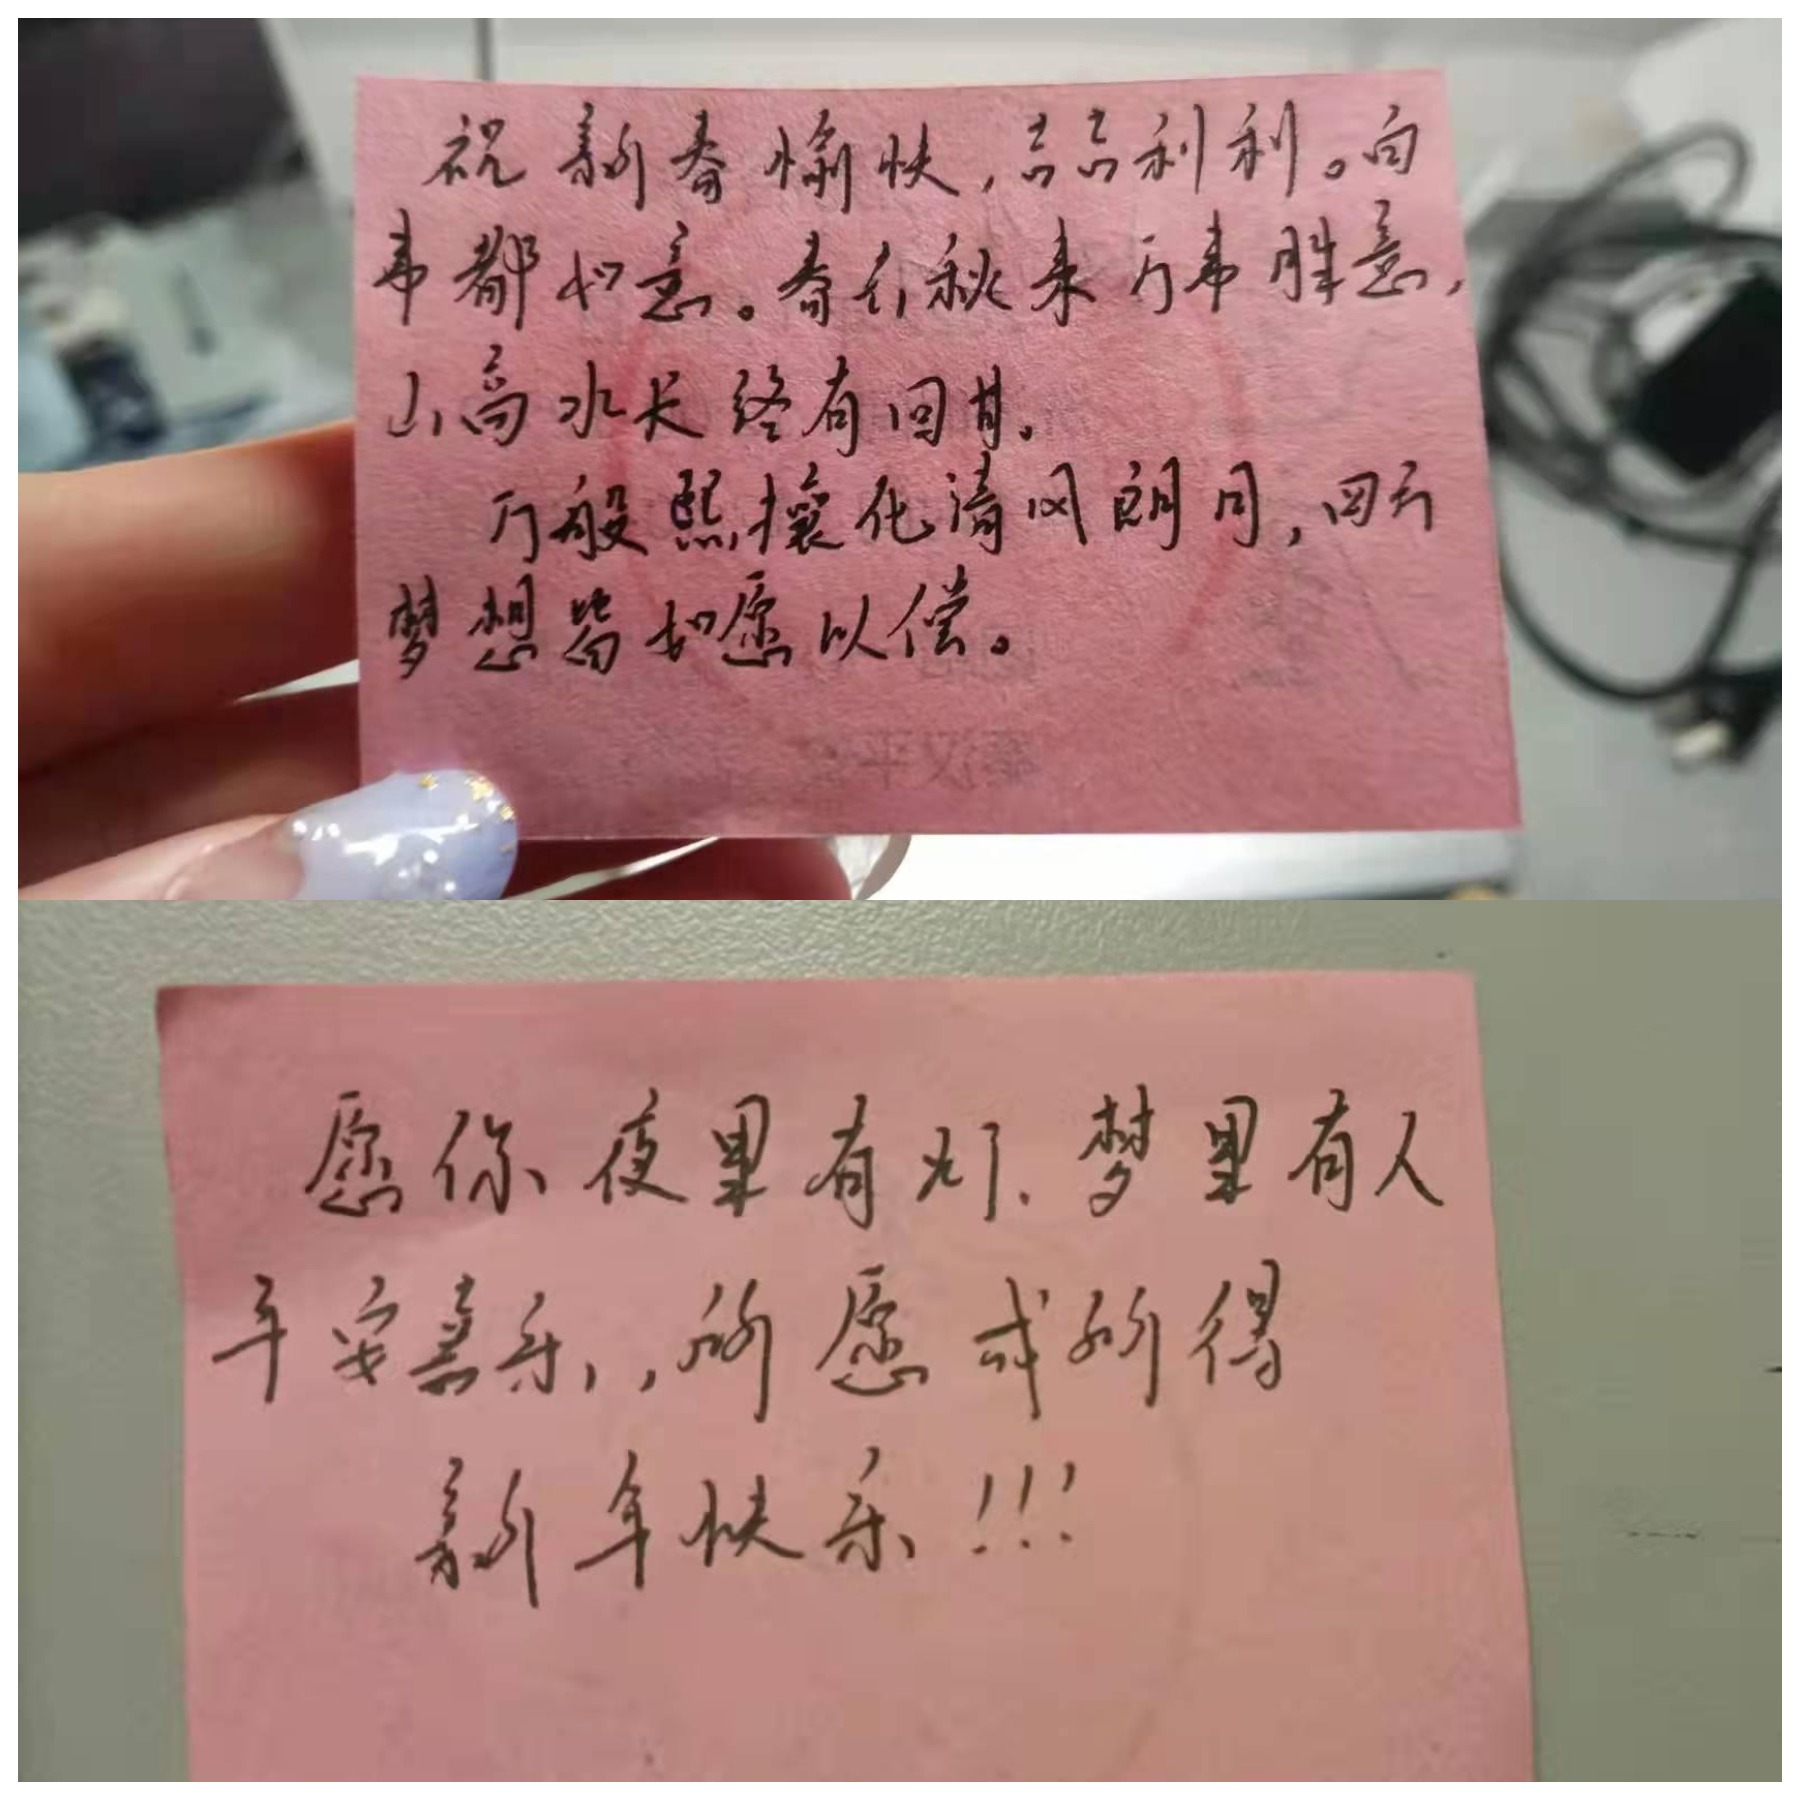 祝新春愉快，吉吉利利。百
事都如意。春去秋来万事胜意，
山高水长终有回甘。
万般熙攘化清风朗月，四方
梦想皆如愿以偿。
秦汉平
愿你夜里有灯、梦里有人
平安喜乐，所愿或所得
新年快乐!!!